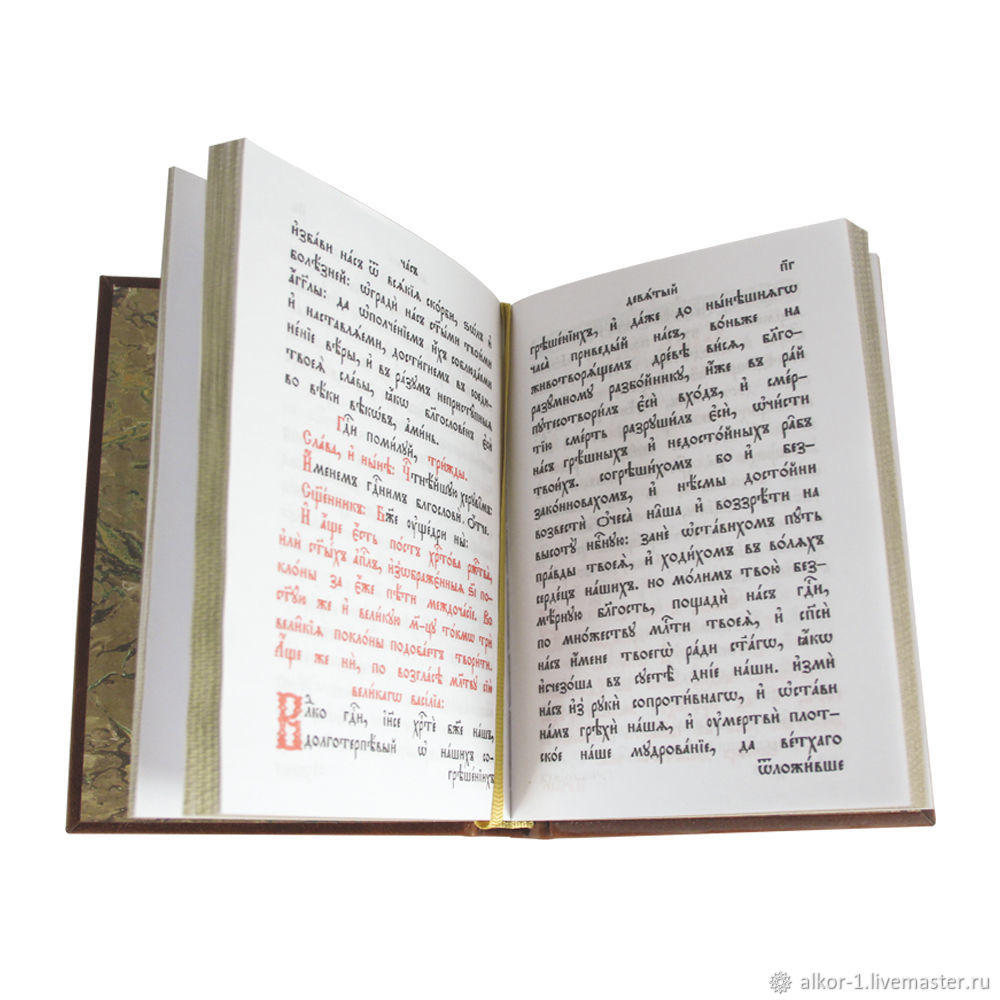 часъ
и҆зба́ви на́съ ѿ всѧ́кїѧ ско́рби, ѕѡ́лъ и҆
болѣ́зней: ѡ҆гради́ на́съ ст҃ы́ми твои́ми
а҆́гг҃лы: да ѡ҆полче́нїемъ и҆́хъ соблюда́еми
и҆ наставлѧ́еми, дости́гнемъ въ соеди-
не́нїе вѣ́ры, и҆ въ ра́зумъ непристꙋ́пныѧ
твоеѧ̀ сла́вы, ꙗ҆́кѡ бл҃гослове́нъ є҆сѝ
во вѣ́ки вѣкѡ́въ, а҆ми́нь.
Гдⷭ҇и поми́лꙋй, три́жды.
Сла́ва, и҆ ны́нѣ: Чⷭ҇тнѣ́йшꙋю херꙋві̑мъ:
И҆́менемъ гдⷭ҇нимъ бл҃гословѝ ѻ҆́тче.
Сщ҃е́нникъ: Бж҃е ᲂу҆ще́дри ны̀:
И҆ а҆́ще є҆́сть по́стъ хрⷭ҇то́ва рж҃тва̀,
и҆лѝ ст҃ы́хъ а҆пⷭ҇лъ, и҆з̾ѡбраже́нныѧ ві҃ по-
кло́ны за є҆́же пѣ́ти междоча́сїе. Во
ст҃ꙋ́ю же и҆ вели́кꙋю м҃-цꙋ то́кмѡ трѝ
вели̑кїѧ покло́ны подоба́етъ твори́ти.
А҆́ще же нѝ, по во́згласѣ мл҃твꙋ сїю̀
вели́кагѡ васі́лїа:
Влⷣко гдⷭ҇и, і҆и҃се хрⷭ҇тѐ бж҃е на́шъ,
долготерпѣ́вый ѡ҆ на́шихъ со-
грѣше́нїихъ
девѧ́тый
п҃г
грѣше́нїихъ, и҆ да́же до ны́нѣшнѧгѡ
часа̀ приведы́й на́съ, во́ньже на
животворѧ́щемъ дре́вѣ висѧ̀, бл҃го-
разꙋ́мномꙋ разбо́йникꙋ, и҆́же въ ра́й
пꙋтесотвори́лъ є҆сѝ вхо́дъ, и҆ сме́р-
тїю сме́рть разрꙋши́лъ є҆сѝ, ѡ҆чи́сти
на́съ грѣ́шныхъ и҆ недосто́йныхъ ра̑бъ
твои́хъ. согрѣши́хомъ бо и҆ без-
зако́нновахомъ, и҆ нѣ́смы досто́йни
возвестѝ ѻ҆чеса̀ на̑ша и҆ воззрѣ́ти на
высотꙋ̀ нбⷭ҇нꙋю: занѐ ѡ҆ста́вихомъ пꙋ́ть
пра́вды твоеѧ̀, и҆ ходи́хомъ въ во́лѧхъ
серде́цъ на́шихъ. но мо́лимъ твою̀ без-
мѣ́рнꙋю бл҃гость, пощадѝ на́съ гдⷭ҇и,
по мно́жествꙋ млⷭ҇ти твоеѧ̀, и҆ сп҃сѝ
на́съ и҆́мене твоегѡ̀ ра́ди ст҃а́гѡ, ꙗ҆́кѡ
и҆счезо́ша въ сꙋетѣ̀ дні́е на́ши. и҆змѝ
на́съ и҆з̾ рꙋкѝ сопроти́внагѡ, и҆ ѡ҆ста́ви
на́мъ грѣхѝ на́шѧ, и҆ ᲂу҆мертвѝ плот-
ско́е на́ше мꙋдрова́нїе, да ве́тхаго
ѿложи́вше
alkor-1.livemaster.ru